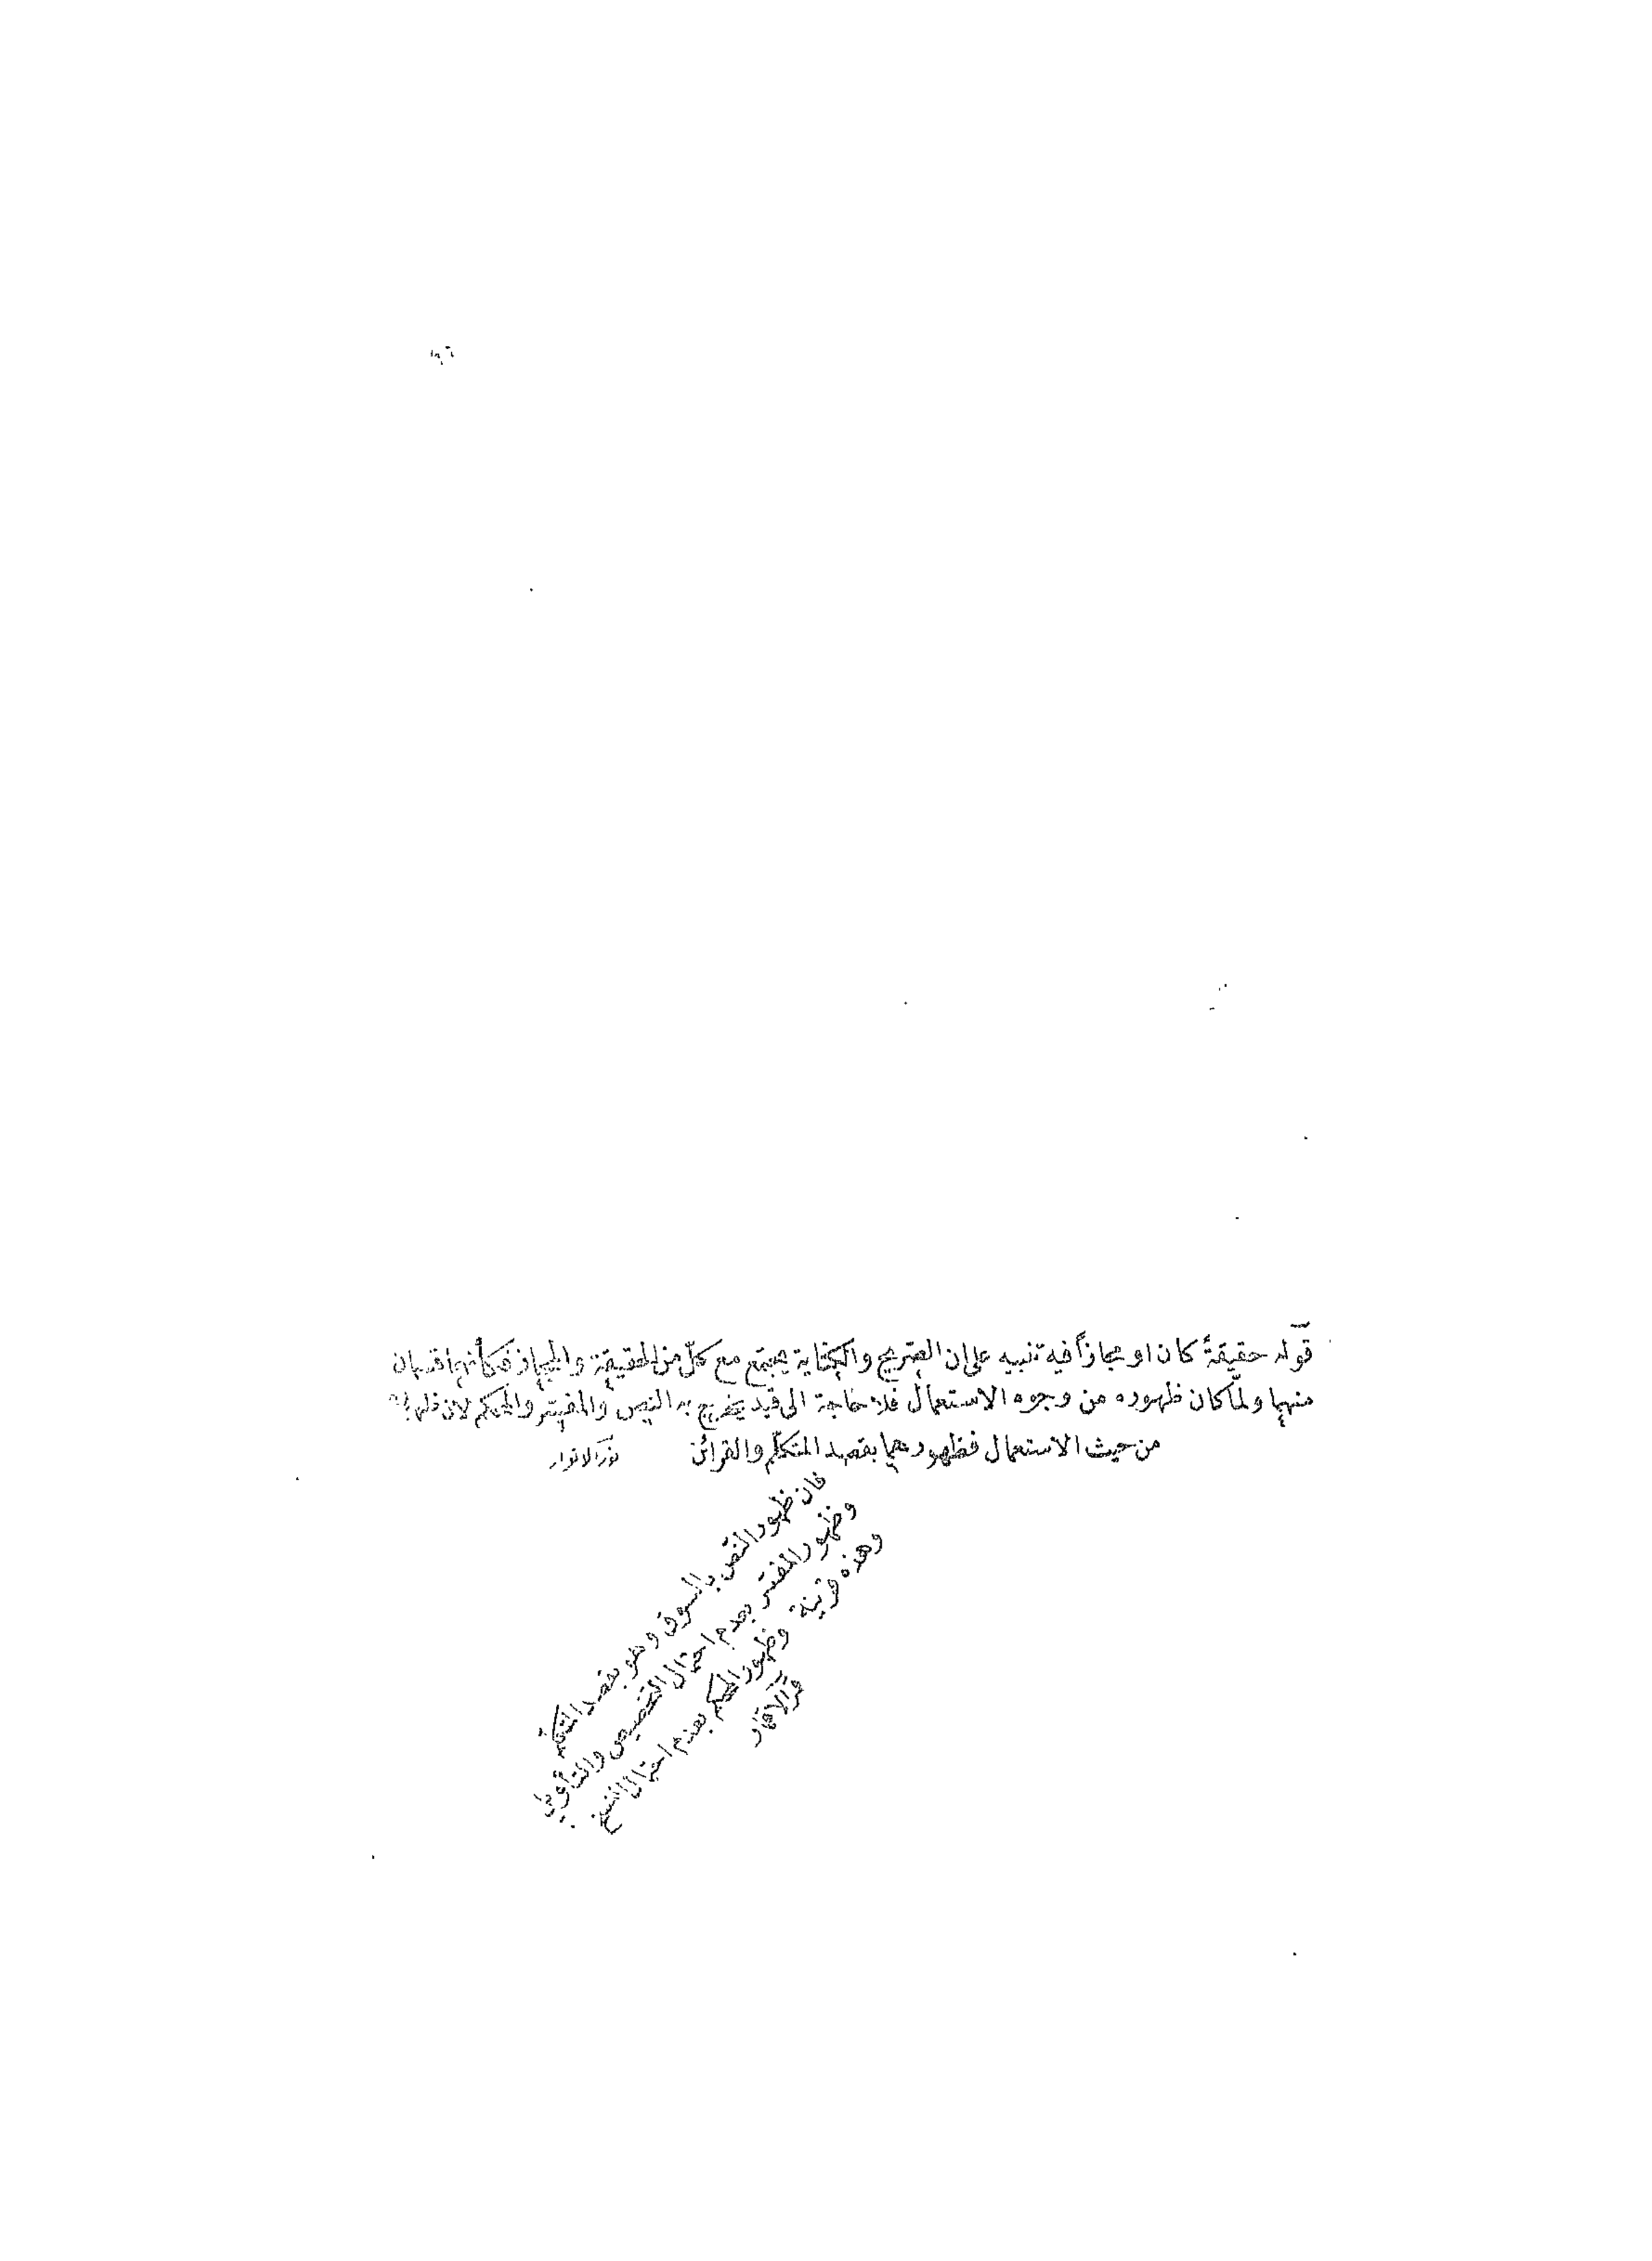 قوله حقيقةً كان او مجازاً فيه تنبيه على ان الصريح والكناية يجتمع مع كلّ من الحقيقة والمجاز فكأنهما قسمان
منهما ولمّا كان ظهوره من وجوه الاستعمال فلا حاجة الى قيد يخرج به النص والمفسّر والمحكم لان
من حيث الاستعمال فظهورهما بقصد المتكلّم والقرائن نور الانوار
فان ظهور النصّ بالسوق وهو بقصد المتكلّم
وظهور المفسّر بعدم احتمال التخصيص والتأويل
وهذه قرينة وظهور المحكم بعدم احتمال النسخ
قمر الاقمار